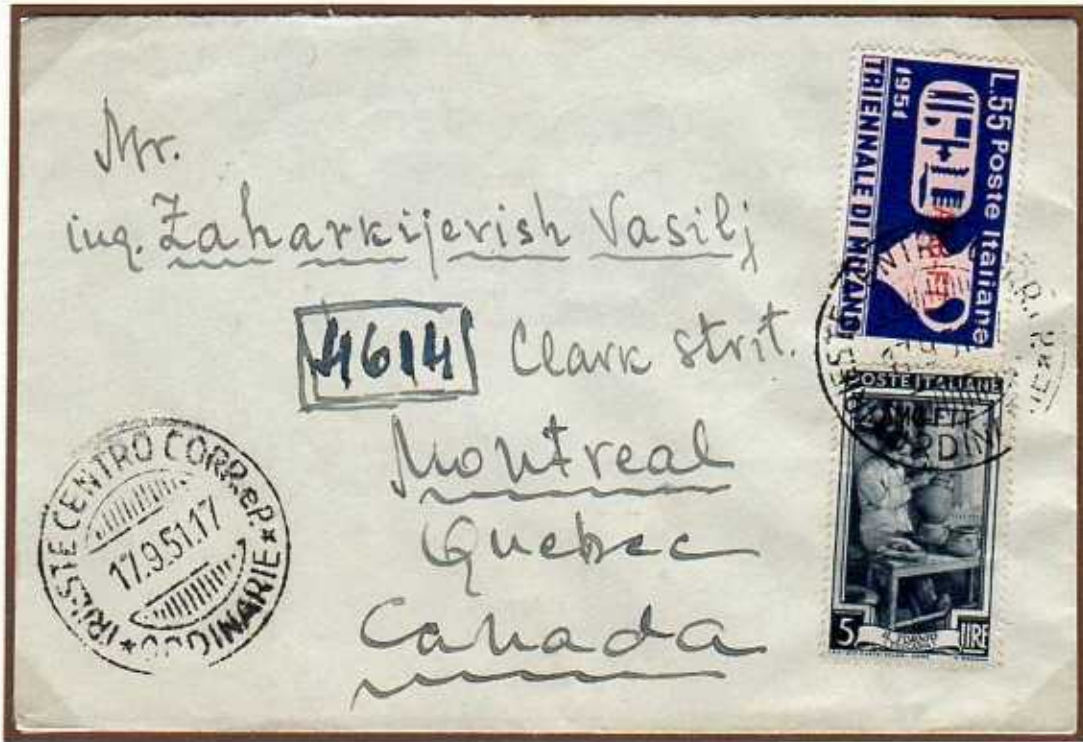 Mr.
ing. Zaharkijevish Vasilj
4614 Clark strit.
Montreal
Quebec
Canada
TRIESTE CENTRO CORR. e P.
17.9.51.17
* ORDINARIE *
L.55 Poste Italiane
1951
TRIENNALE DI MILANO
POSTE ITALIANE
AMG-FTT
5 LIRE
IL TORNIO